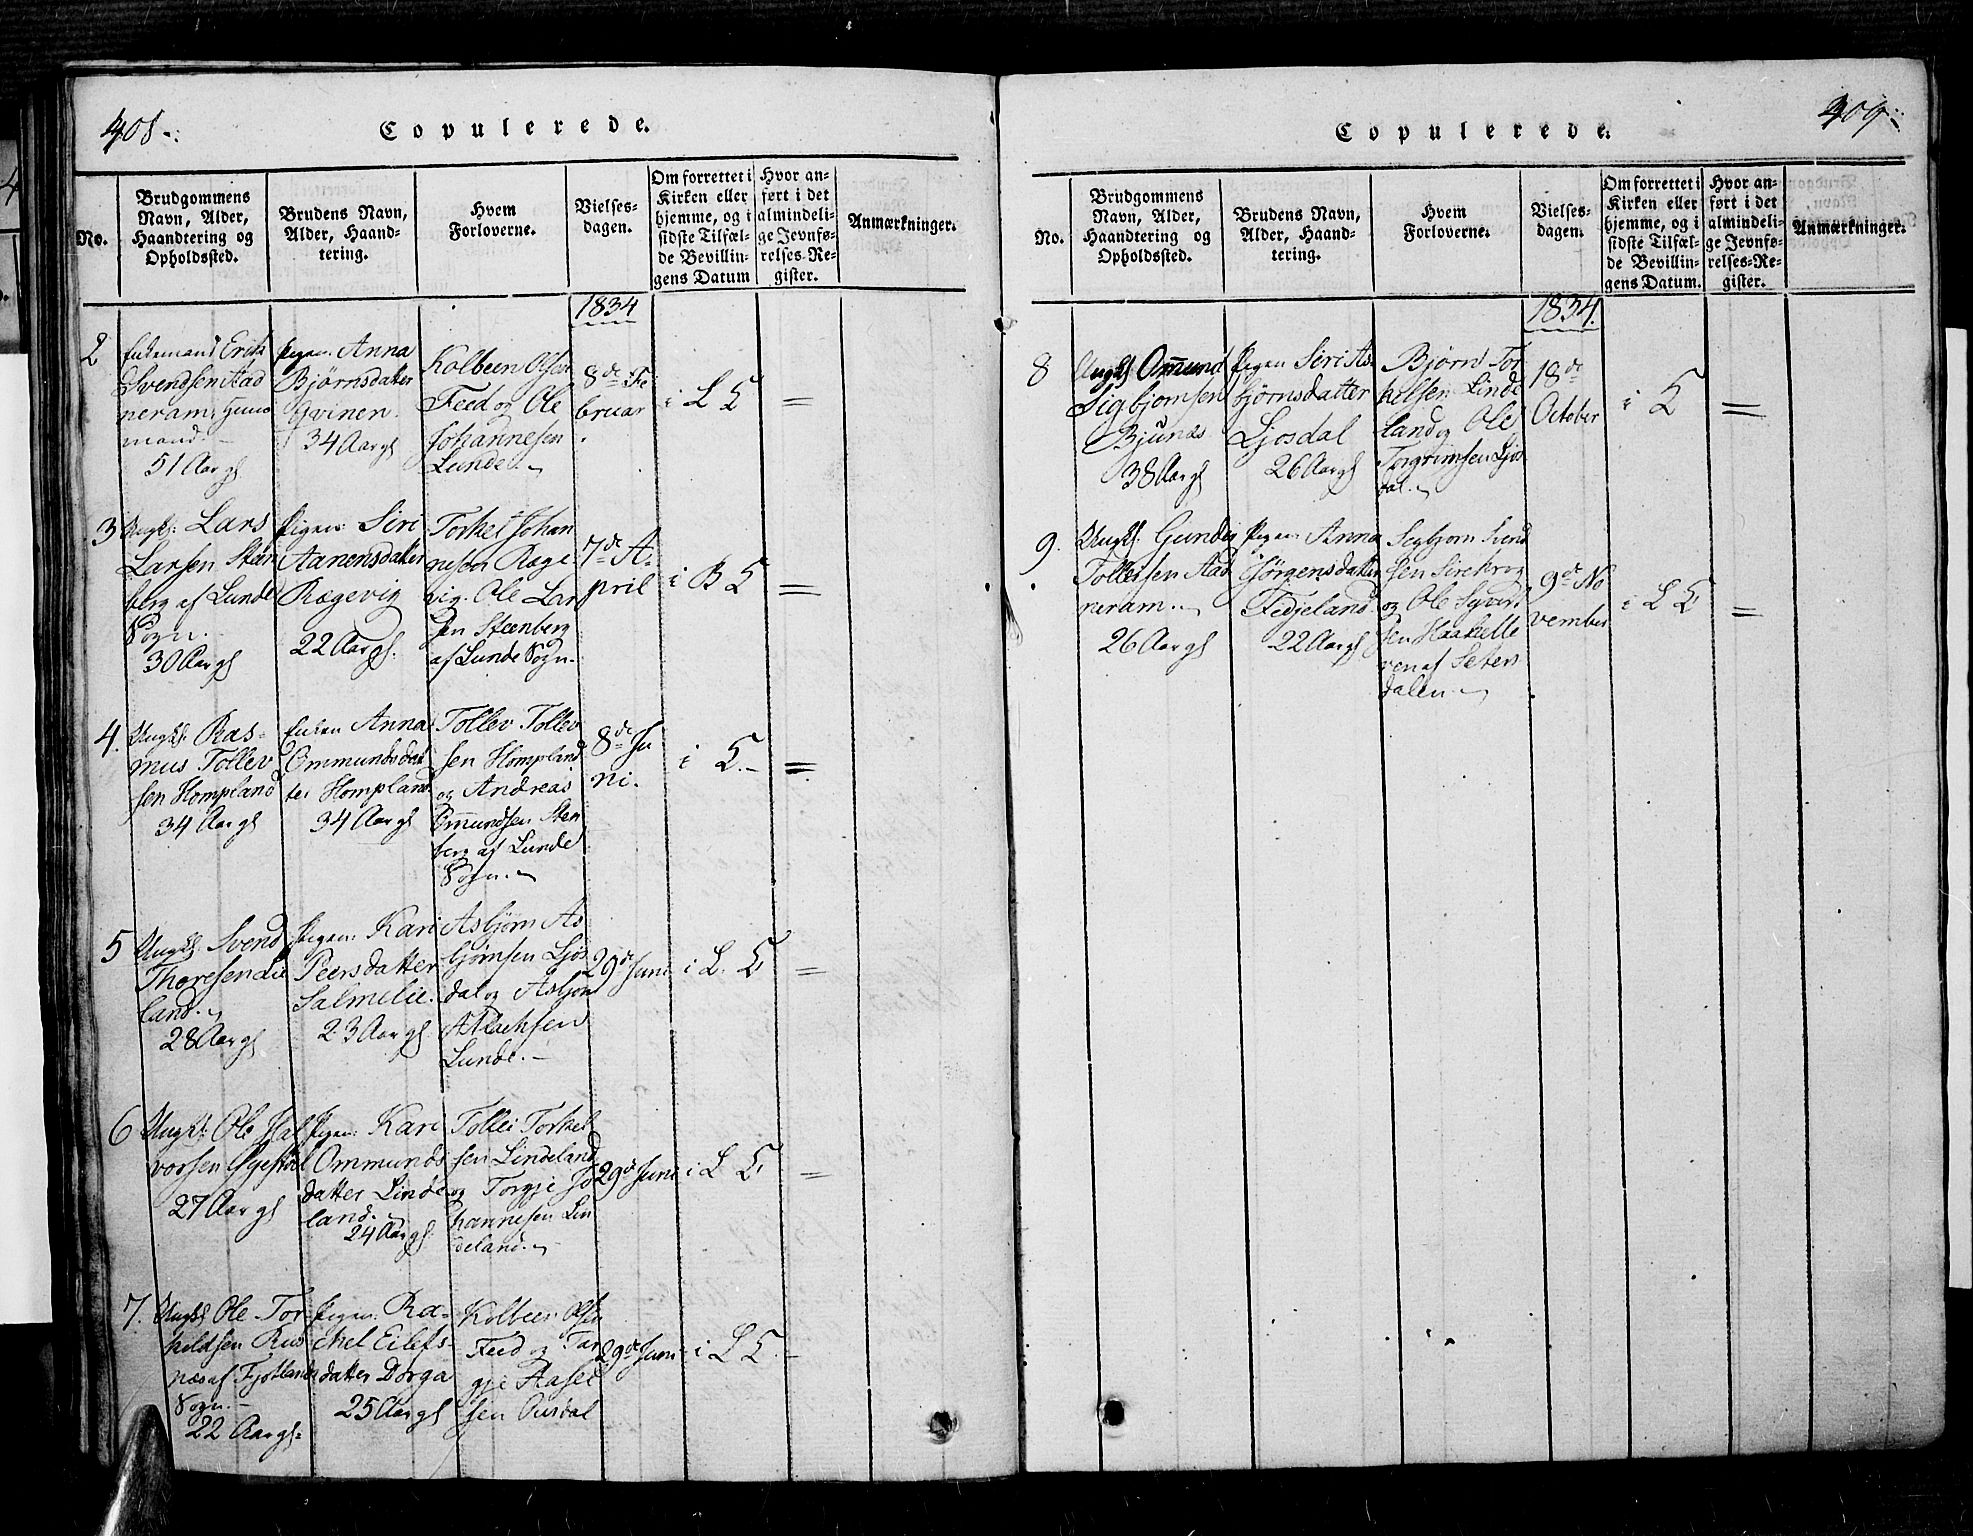 408.
Copulerede.
No.
Brudgommens
Navn, Alder,
Haandtering og
Opholdssted.
Brudens Navn,
Alder, Haand-
tering.
Hvem
Forloverne.
Vielses-
dagen.
Om forrettet i
Kirken eller
hjemme, og i
sidste Tilfæl-
de Bevillin-
gens Datum
Hvor an-
ført i det
almindeli-
ge Jevnfø-
relses-Re-
gister.
Anmærkninger.
1834
2
Enkemand Erik
Svendsen Aad
neram,
mand.
51 Aar gl
Pigen Anna
Bjørnsdatter
Qvinen.
34 Aar gl
Kolbeen Olsen
Feed og Ole
Johannesen
Lunde.
8de Fe
bruar
i L K
=
3
Ungk: Lars
Larsen Steen
berg af Lunde
Sogn.
30 Aar gl
Pigen Siri
Aanensdatter
Rægevig
22 Aar gl.
Torkel Johan
nesen Ræge
vig. Ole Lar
sen Steenberg
af Lunde Sogn.
7de A-
pril
i B K
=
4.
Ungk: Ras-
mus Tollev
sen Hompland
34 Aar gl
Enken Anna
Ommundsdat
ter Hompland
34 Aar gl
Tollev Tollev
sen Hompland
og Andreas
Omundsen Sten
berg af Lunde
Sogn.
8de Ju
ni.
i K.
=
5
Ungk: Svend
Thoresen Lie
land.
28 Aar gl
Pigen Kari
Peersdatter
Salmelie.
23 Aar gl
Asbjørn As
bjørnsen Ljos
dal og Asbjørn
Atlaksen
Lunde.
29de Juni
i L. K
=
6
Ungk: Ole Hal
vorsen Øyestøl
27 Aar gl
Pigen: Kari
Ommunds
datter Linde
land.
24 Aar gl
Tollei Torkel
sen Lindeland
og Torgje Jo
hannesen Lin
deland.
29de Juni
i L K
=
7.
Ungk Ole Tor
kildsen Rus
næs af Fjotlands
Sogn.
22 Aar gl.
Pigen: Ra-
chel Eilefs-
datter Dorga
25 Aar gl
Kolbeen Olsen
Feed og Tar
gje Aasel
sen Ousdal
29de Juni
i L K.
409.
Copulerede.
No.
Brudgommens
Navn, Alder,
Haandtering og
Opholdssted.
Brudens Navn,
Alder, Haand-
tering.
Hvem
Forloverne.
Vielses-
dagen.
Om forrettet i
Kirken eller
hjemme, og i
sidste Tilfæl-
de Bevillin-
gens Datum.
Hvor an-
ført i det
almindeli-
ge Jevnfø-
relses-Re-
gister.
Anmærkninger.
1834.
8
Ungk Omund
Sigbjørnsen
Bjunes
38 Aar gl
Pigen Siri As
bjørnsdatter
Ljosdal
26 Aar gl
Bjørn Tor
kelsen Linde
land og Ole
Torgrimsen Ljos
dal.
18de
October
i K
=
9.
Ungk: Gunder
Tolleisen Aad
neram.
26 Aar gl
Pigen Anna
Jørgensdatter
Fedjeland
22 Aar gl
Sigbjørn Svend
sen Sirekrog
og Ole Syvert
sen Haahelle
ren af Seters
dalen.
9de No
vember
i L K
=